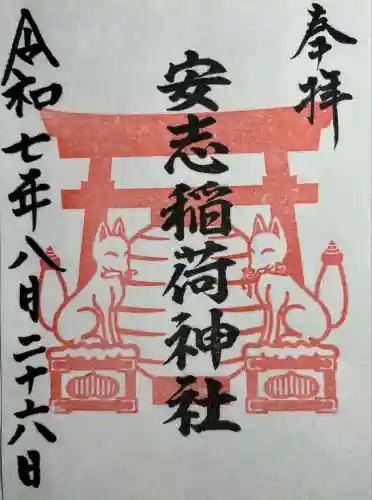 奉拝
安志稲荷神社
令和七年八日二十六日